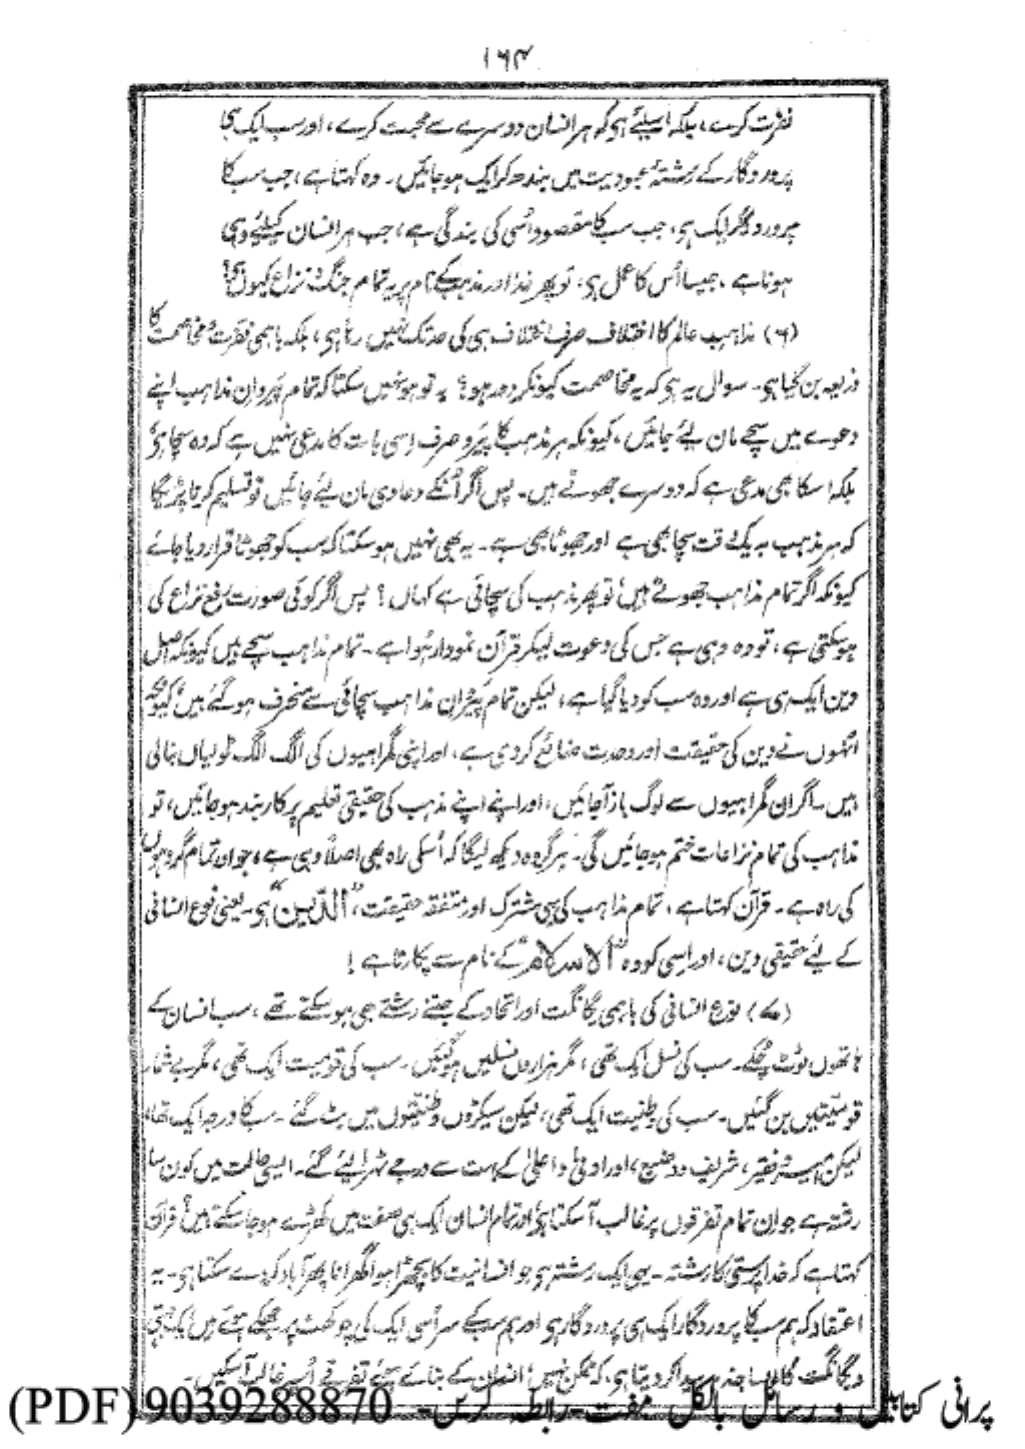 ۱۶۴
نفرت کرے، بلکہ اسلئے ہی کہ ہر انسان دوسرے سے محبت کرے، اور سب ایک ہی
پروردگار کے رشتۂ عبودیت میں بندھ کر ایک ہو جائیں۔ وہ کہتا ہے، جب سب کا
پروردگار ایک ہی، جب سب کا مقصود اُسی کی بندگی ہے، جب ہر انسان کیلئے وہی
ہونا ہے، جیسا اُس کا عمل ہی، تو پھر خدا اور مذہب کے نام پر یہ تمام جنگ و نزاع کیوں ہی؟
(۶) مذاہب عالم کا اختلاف صرف اختلاف ہی کی حد تک نہیں رہا ہی، بلکہ باہمی نفرت و مخاصمت کا
ذریعہ بن گیا ہی۔ سوال یہ ہی کہ یہ مخاصمت کیونکر دور ہو؟ یہ تو ہو نہیں سکتا کہ تمام پَیروانِ مذاہب اپنے
دعوے میں سچے مان لیئے جائیں، کیونکہ ہر مذہب کا پَیرو صرف اِسی بات کا مدعی نہیں ہے کہ وہ سچا ہی
بلکہ اسکا بھی مدعی ہے کہ دوسرے جھوٹے ہیں۔ پس اگر اُنکے دعاوی مان لیئے جائیں تو تسلیم کرنا پڑیگا
کہ ہر مذہب بہ یک وقت سچا بھی ہے اور جھوٹا بھی ہے۔ یہ بھی نہیں ہو سکتا کہ سب کو جھوٹا قرار دیا جائے
کیونکہ اگر تمام مذاہب جھوٹے ہیں، تو پھر مذہب کی سچائی ہے کہاں؟ پس اگر کوئی صورت رفع نزاع کی
ہو سکتی ہے، تو وہ وہی ہے جس کی دعوت لیکر قرآن نمودار ہُوا ہے۔ تمام مذاہب سچے ہیں کیونکہ اصل
دین ایک ہی ہے اور وہ سب کو دیا گیا ہے، لیکن تمام پَیروان مذاہب سچائی سے منحرف ہو گئے ہیں، کیونکہ
انہوں نے دین کی حقیقت اور وحدت ضائع کر دی ہے، اور اپنی گمراہیوں کی الگ الگ ٹولیاں بنا لی
ہیں۔ اگر ان گمراہیوں سے لوگ باز آجائیں، اور اپنے اپنے مذہب کی حقیقی تعلیم پر کاربند ہو جائیں، تو
مذاہب کی تمام نزاعات ختم ہو جائیں گی۔ ہر گروہ دیکھ لیگا کہ اُسکی راہ بھی اصلاً وہی ہے، جو ان تمام گروہوں
کی راہ ہے۔ قرآن کہتا ہے، تمام مذاہب کی یہی مشترک اور متفقہ حقیقت، "الدّین" ہی۔ یعنی نوع انسانی
کے لیے حقیقی دین، اور اِسی کو وہ "الاسلام" کے نام سے پکارتا ہے!
(۷) نوع انسانی کی باہمی یگانگت اور اتحاد کے جتنے رشتے بھی ہو سکتے تھے، سب انسان کے
ہاتھوں ٹوٹ چکے۔ سب کی نسل ایک تھی، مگر ہزاروں نسلیں ہو گئیں۔ سب کی قومیت ایک تھی، مگر بے شمار
قومیّتیں بن گئیں۔ سب کی وطنیت ایک تھی، لیکن سیکڑوں وطنیتوں میں بٹ گئے۔ سب کا درجہ ایک تھا،
لیکن امیر و فقیر، شریف و وضیع، اور ادنیٰ و اعلیٰ کے بہت سے درجے ٹھرا لیئے گئے۔ ایسی حالت میں کون سا
رشتہ ہے جو اِن تمام تفرقوں پر غالب آسکتا ہی، اور تمام انسان ایک ہی صف میں کھڑے ہو جا سکتے ہیں؟ قرآن
کہتا ہے کہ خدا پرستی کا رشتہ۔ یہی ایک رشتہ ہی جو انسانیت کا بچھڑا ہوا گھرانا پھر آباد کر دے سکتا ہی۔ یہ
اعتقاد کہ ہم سب کا پروردگار ایک ہی پروردگار ہی اور ہم سب کے سر اُسی ایک کی چوکھٹ پر جھکے ہوئے ہیں، یکجہتی
و یگانگت کا ایسا جذبہ پیدا کر دیتا ہی، کہ ممکن نہیں، انسان کے بنائے ہوئے تفرقے اُس پر غالب آسکیں۔
پرانی کتابیں و رسائل بالکل مفت رابطہ کریں۔ 9039288870 (PDF)